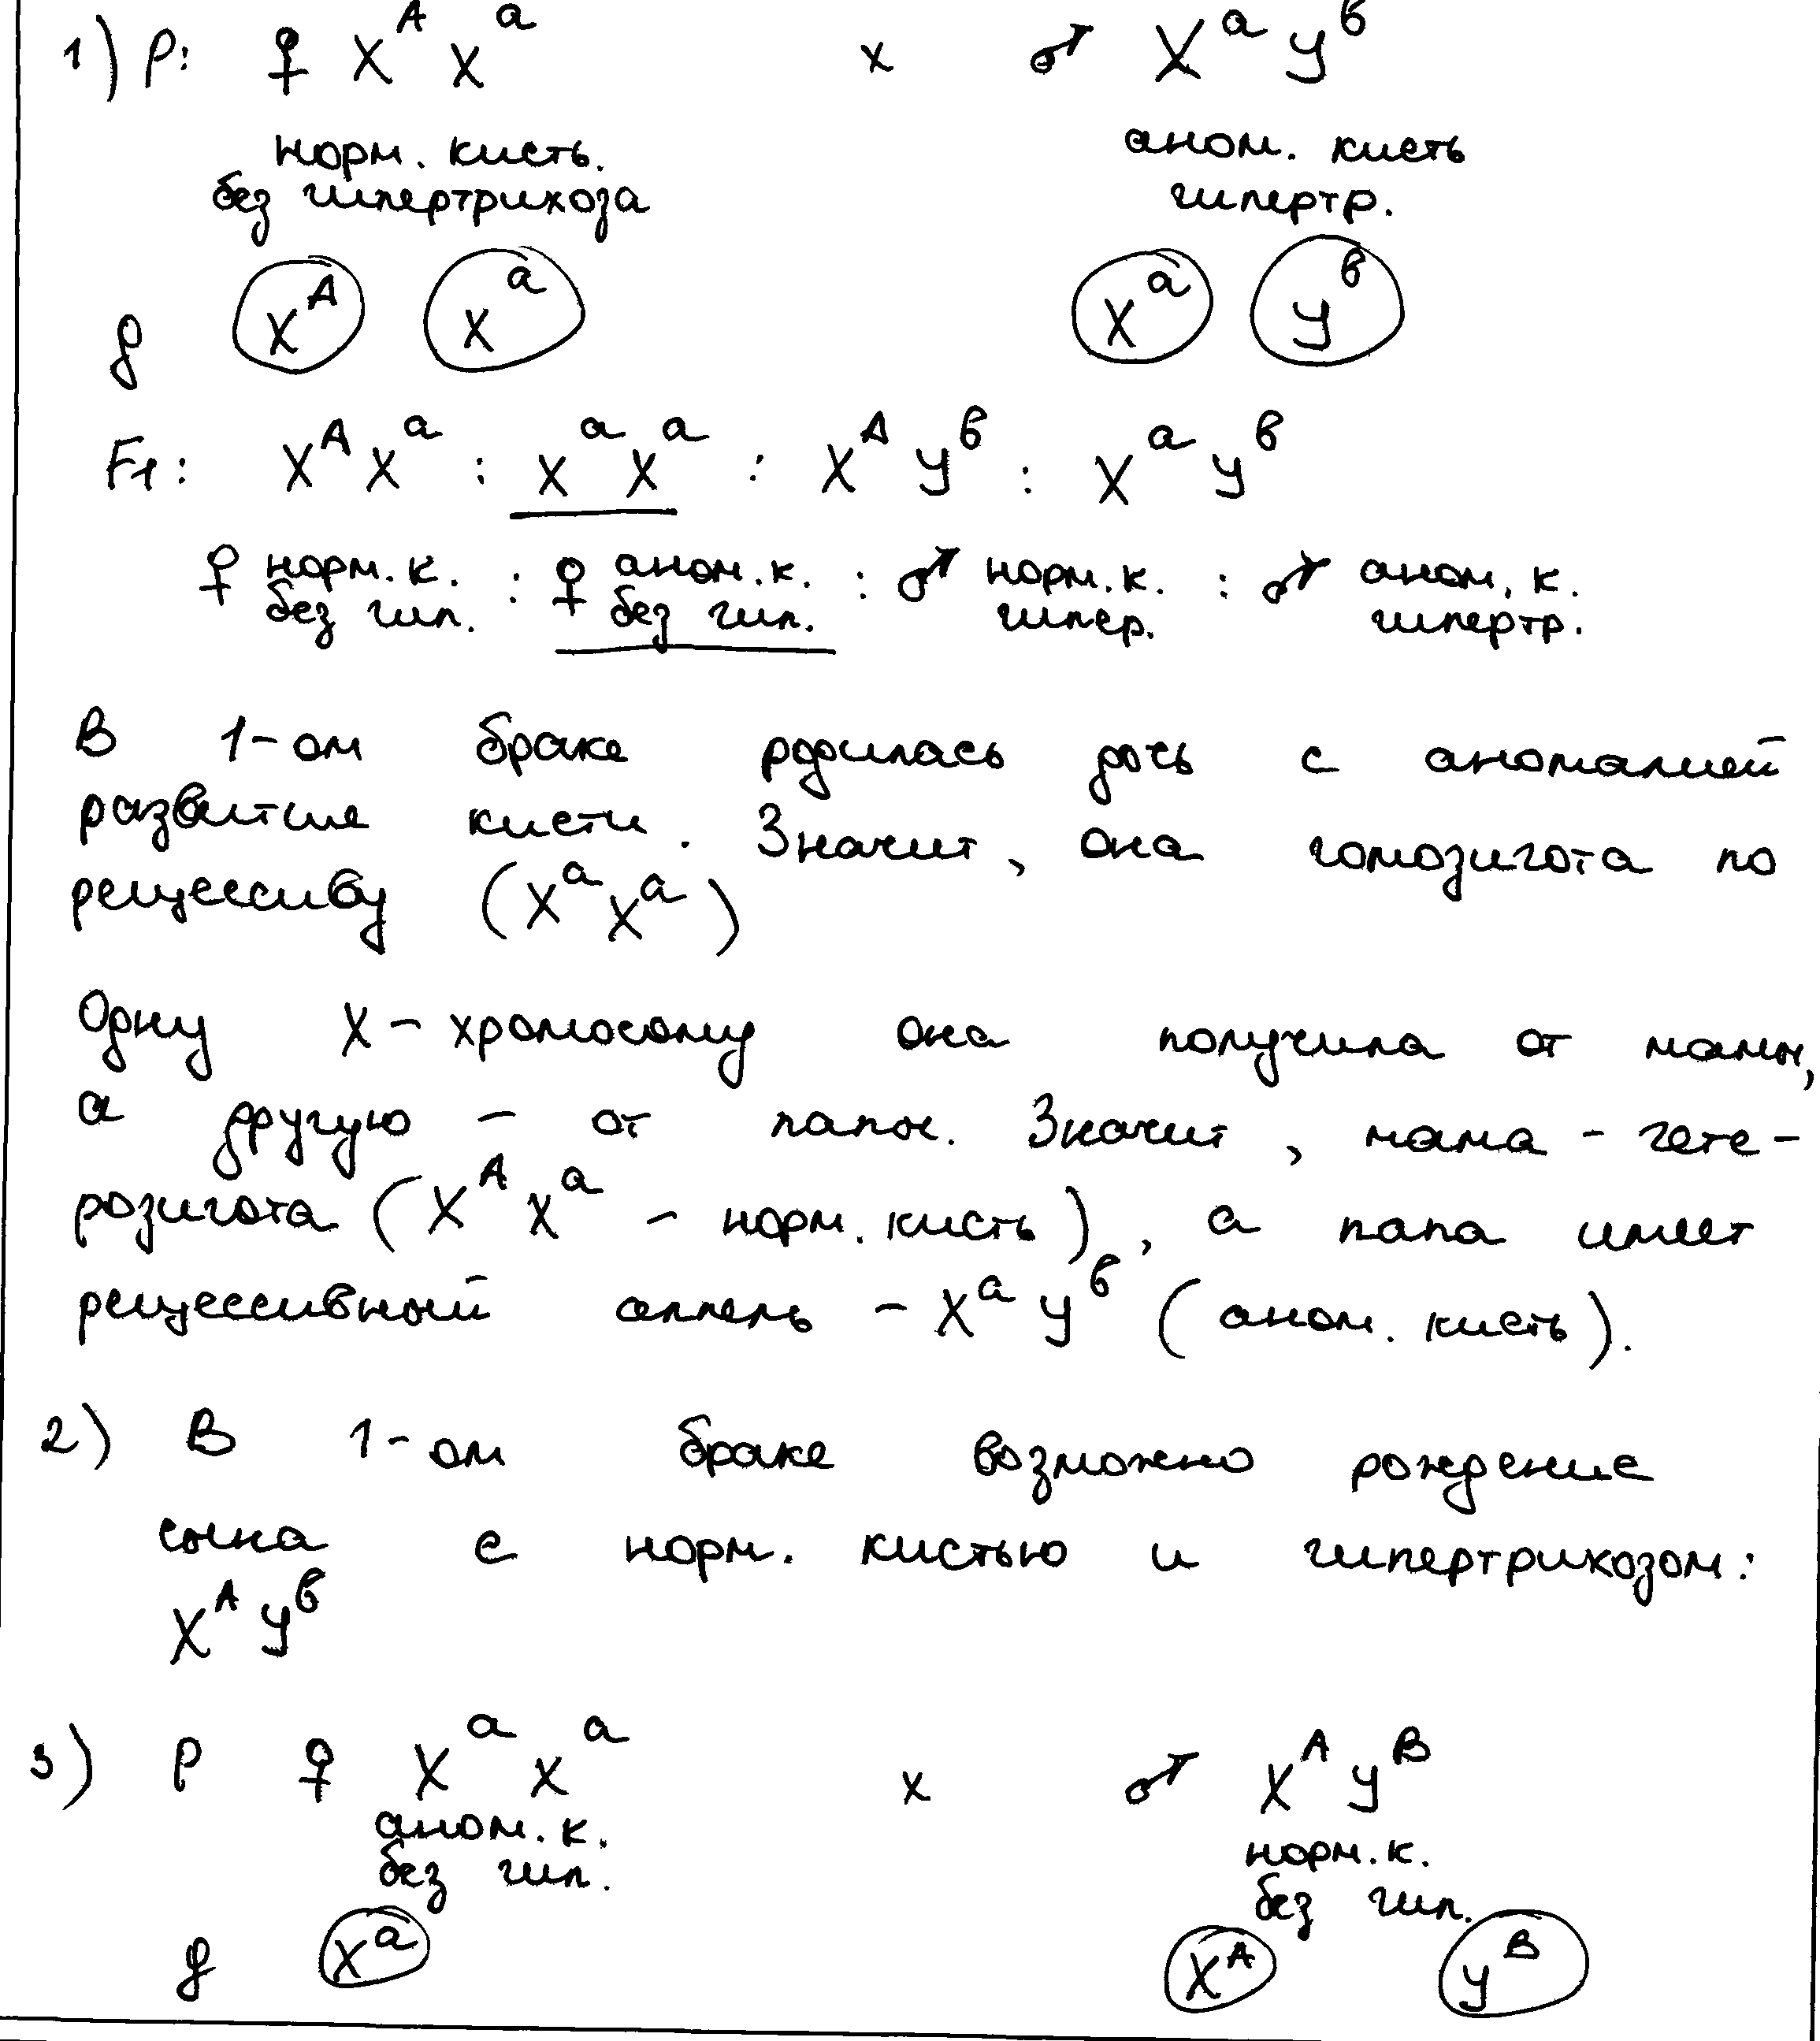 1) P: ♀ X^A X^a x ♂ X^a Y^в
норм. кисть. аном. кисть
без гипертрихоза гипертр.
g X^A X^a X^a Y^в
F1: X^A X^a : X^a X^a : X^A Y^в : X^a Y^в
♀ норм. к. : ♀ аном. к. : ♂ норм. к. : ♂ аном. к.
без гип. без гип. гипер. гипертр.
В 1-ом браке родилась дочь с аномалией
развитие кисти. Значит, она гомозигота по
рецессиву (X^a X^a)
Одну X-хромосому она получила от мамы,
а другую - от папы. Значит, мама - гете-
розигота (X^A X^a - норм. кисть), а папа имеет
рецессивный аллель - X^a Y^в (аном. кисть).
2) В 1-ом браке возможно рождение
сына с норм. кистью и гипертрихозом:
X^A Y^в
3) P ♀ X^a X^a x ♂ X^A Y^B
аном. к. норм. к.
без гип. без гип.
g X^a X^A Y^B